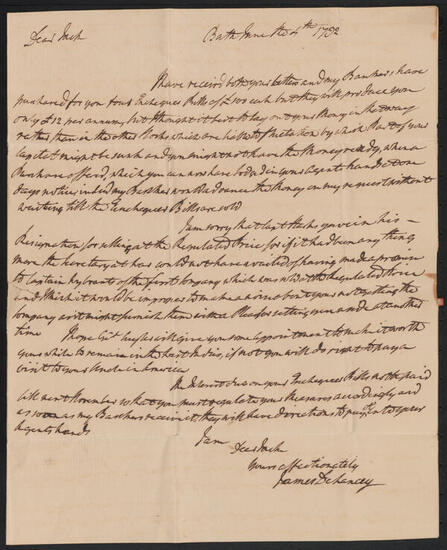 Dear Jack Bath June the 4th 1792
I have receiv'd both your letters and my Bankers have
purchased for you four Exchequer Bills of £100 each but they will produce you
only £12 per annum, but I thought it best to lay out your Money in the way
rather than in the other Stocks which are liable to fluctuation by which Part of your
Capital might be sunk and you might not have the Money ready, when a
Purchase offer'd, which you can now have lodged in your Agents hands at one
days notice, indeed my Bankers would advance the Money on my request without
waiting till the Exchequer Bills are sold
I am sorry that Capt Hawkes gave in his
Resignation for selling at the Regulated Price for if it had been any thing
more the Secretary at has could not have avoided of having made a promise
to Captain Kybrants of the first Company which was not the Regulated Price
and I think it would be improper to make a noise about your not getting the
Company as it might furnish them with a Plea for setting you aside at another
time I hope Genl will give you some appointment to make it worth
your while to remain in the East Indies, if not you will do right to pay a
visit to your Uncle in America
the Interest due on your Exchequer Bills is not paid
till next November so that you must regulate your Measures accordingly and
as soon as my Bankers receive it, they will have directions to pay it into your
Agents hands
I am
Dear Jack
Yours affectionately
James Delancey